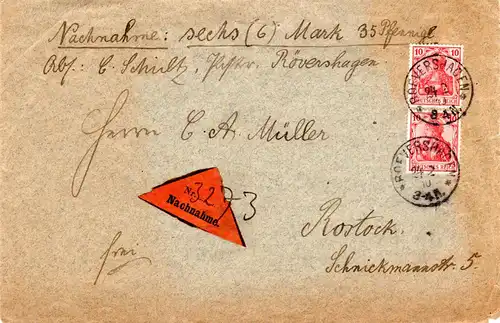 Nachnahme: sechs (6) Mark 35 Pfennige
Abs: C. Schult, Rövershagen
10 10
DEUTSCHES REICH
ROEVERSHAGEN
Herrn C. A. Müller
10
ROEVERSHAGEN
3-4N.
No 3273
Nachnahme.
Rostock.
frei
Schnickmannstr. 5.